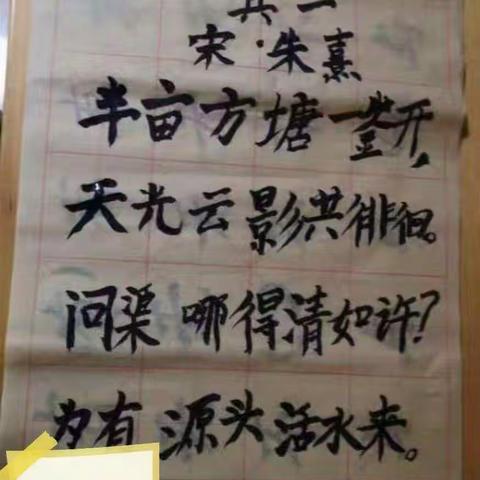 其一
宋·朱熹
半亩方塘一鉴开,
天光云影共徘徊。
问渠哪得清如许?
为有源头活水来。